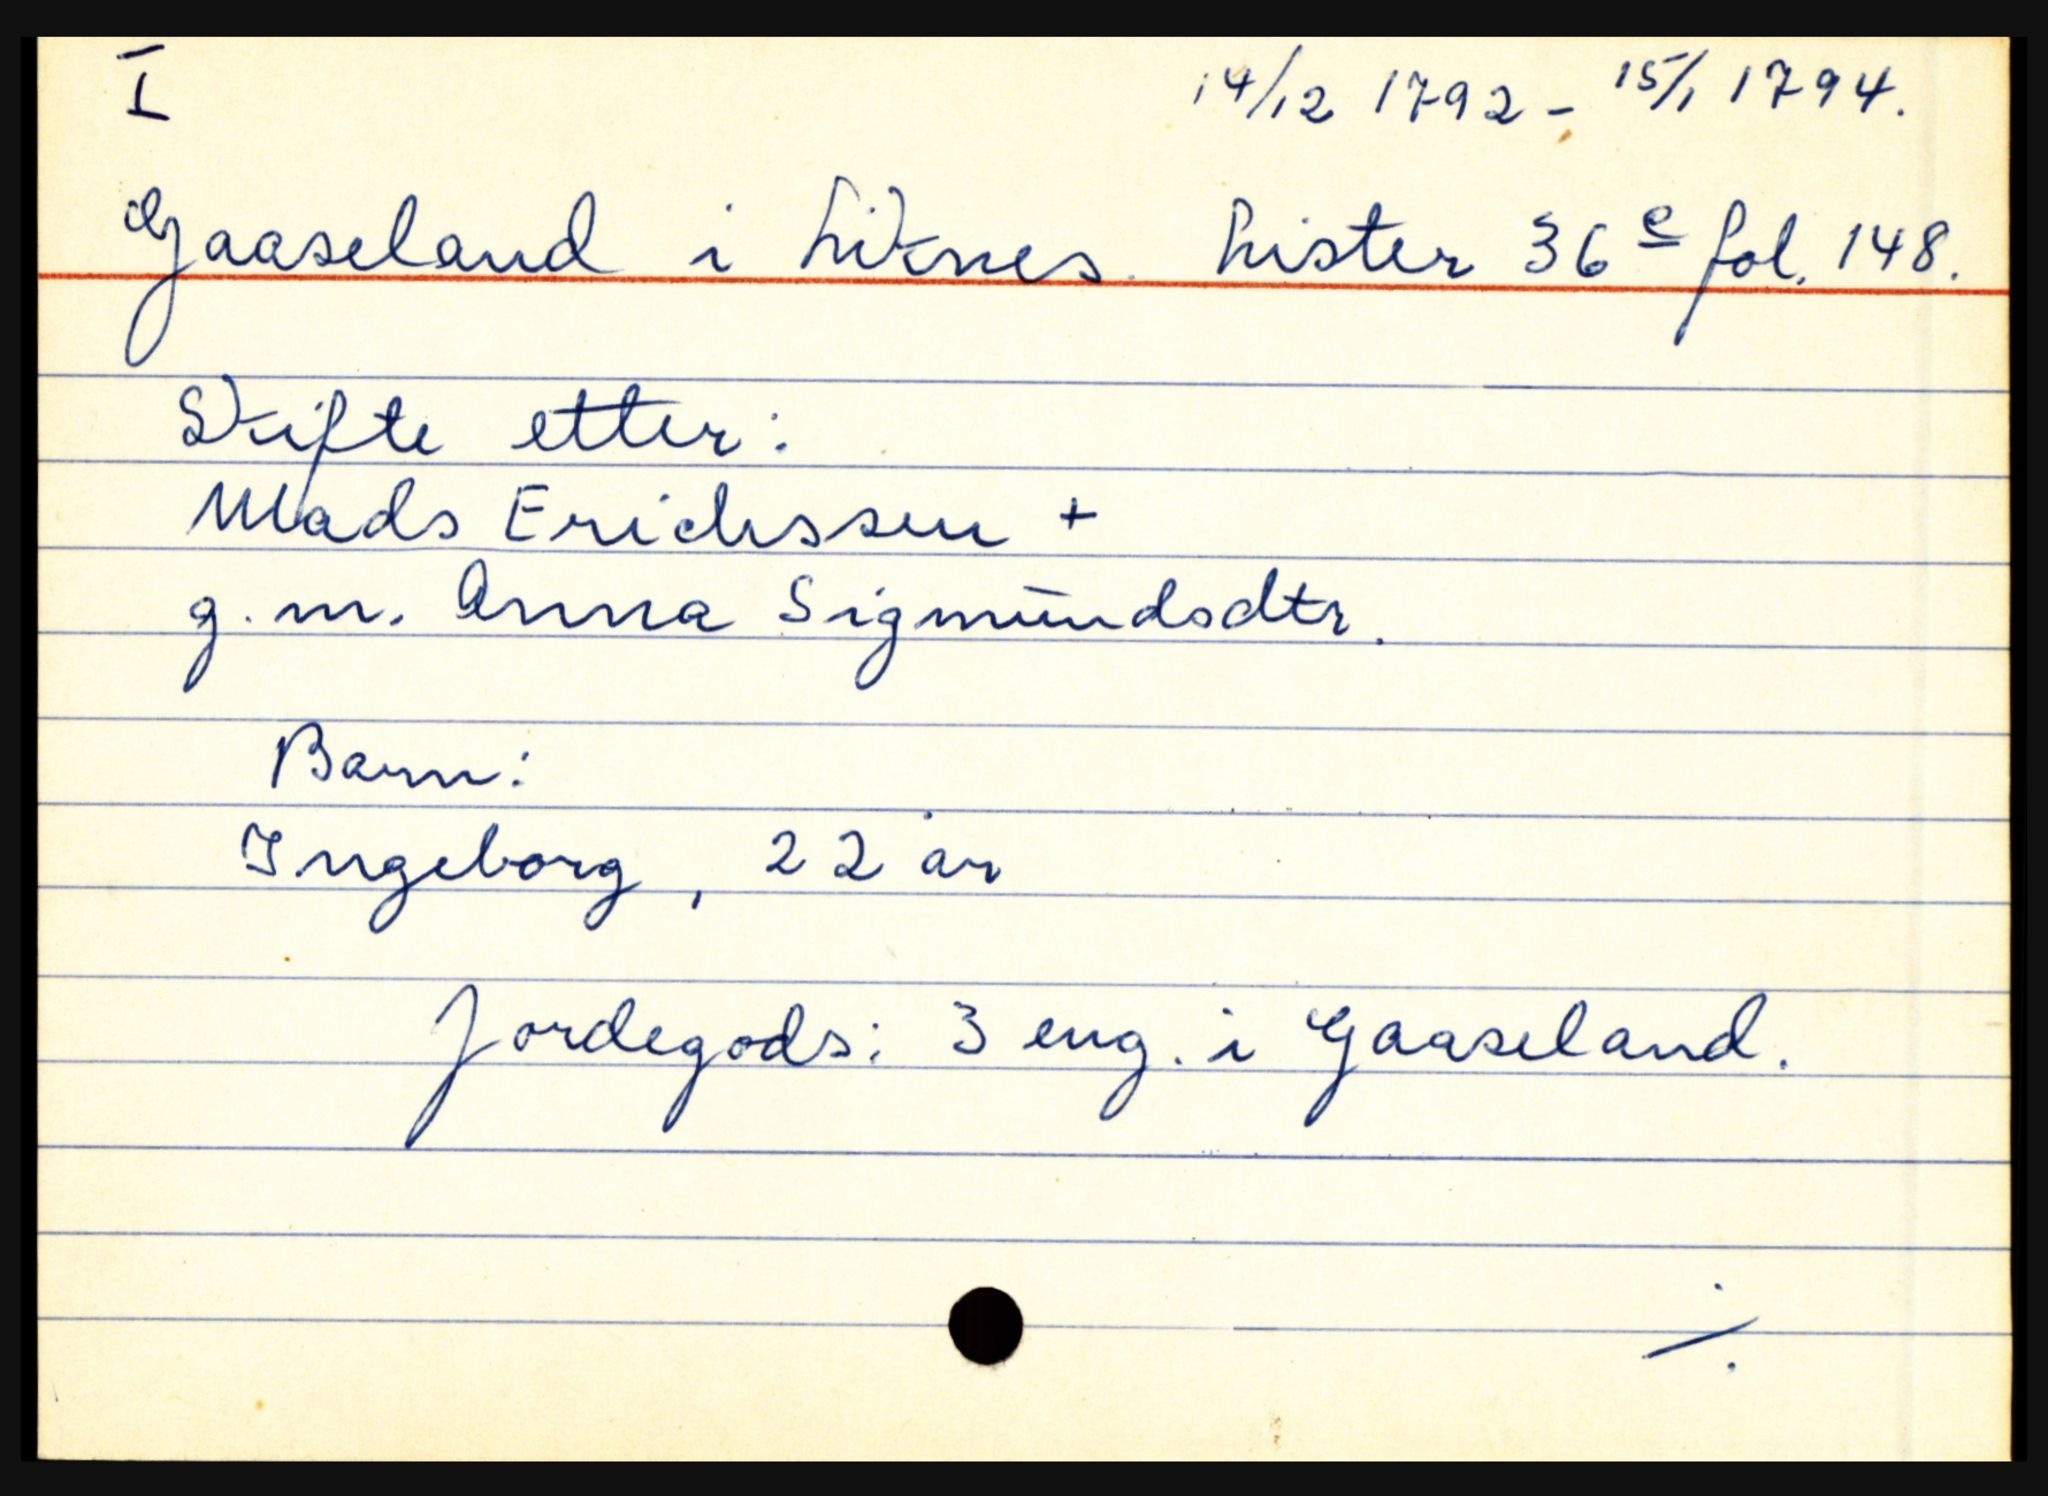 I
14/12 1792 - 15/1 1794.
Gaaseland i Liknes. Lister 36 c fol. 148.
Skifte etter:
Mads Erichssen +
g. m. Anna Sigmundsdtr.
Barn:
Ingeborg, 22 år
Jordegods: 3 eng. i Gaaseland.
./.